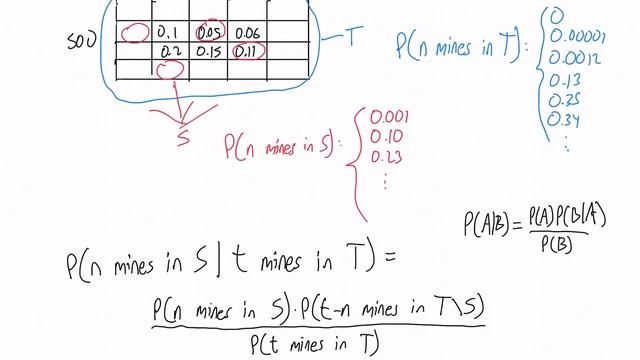 500
0.1 0.05 0.06
0.2 0.15 0.11
T
S
P(n mines in T):
0
0.00001
0.0012
0.13
0.35
0.34
⋮
P(n mines in S):
0.001
0.10
0.23
⋮
P(A|B) = P(A)P(B|A)
P(B)
P(n mines in S | t mines in T) =
P(n mines in S)·P(t-n mines in T\S)
P(t mines in T)